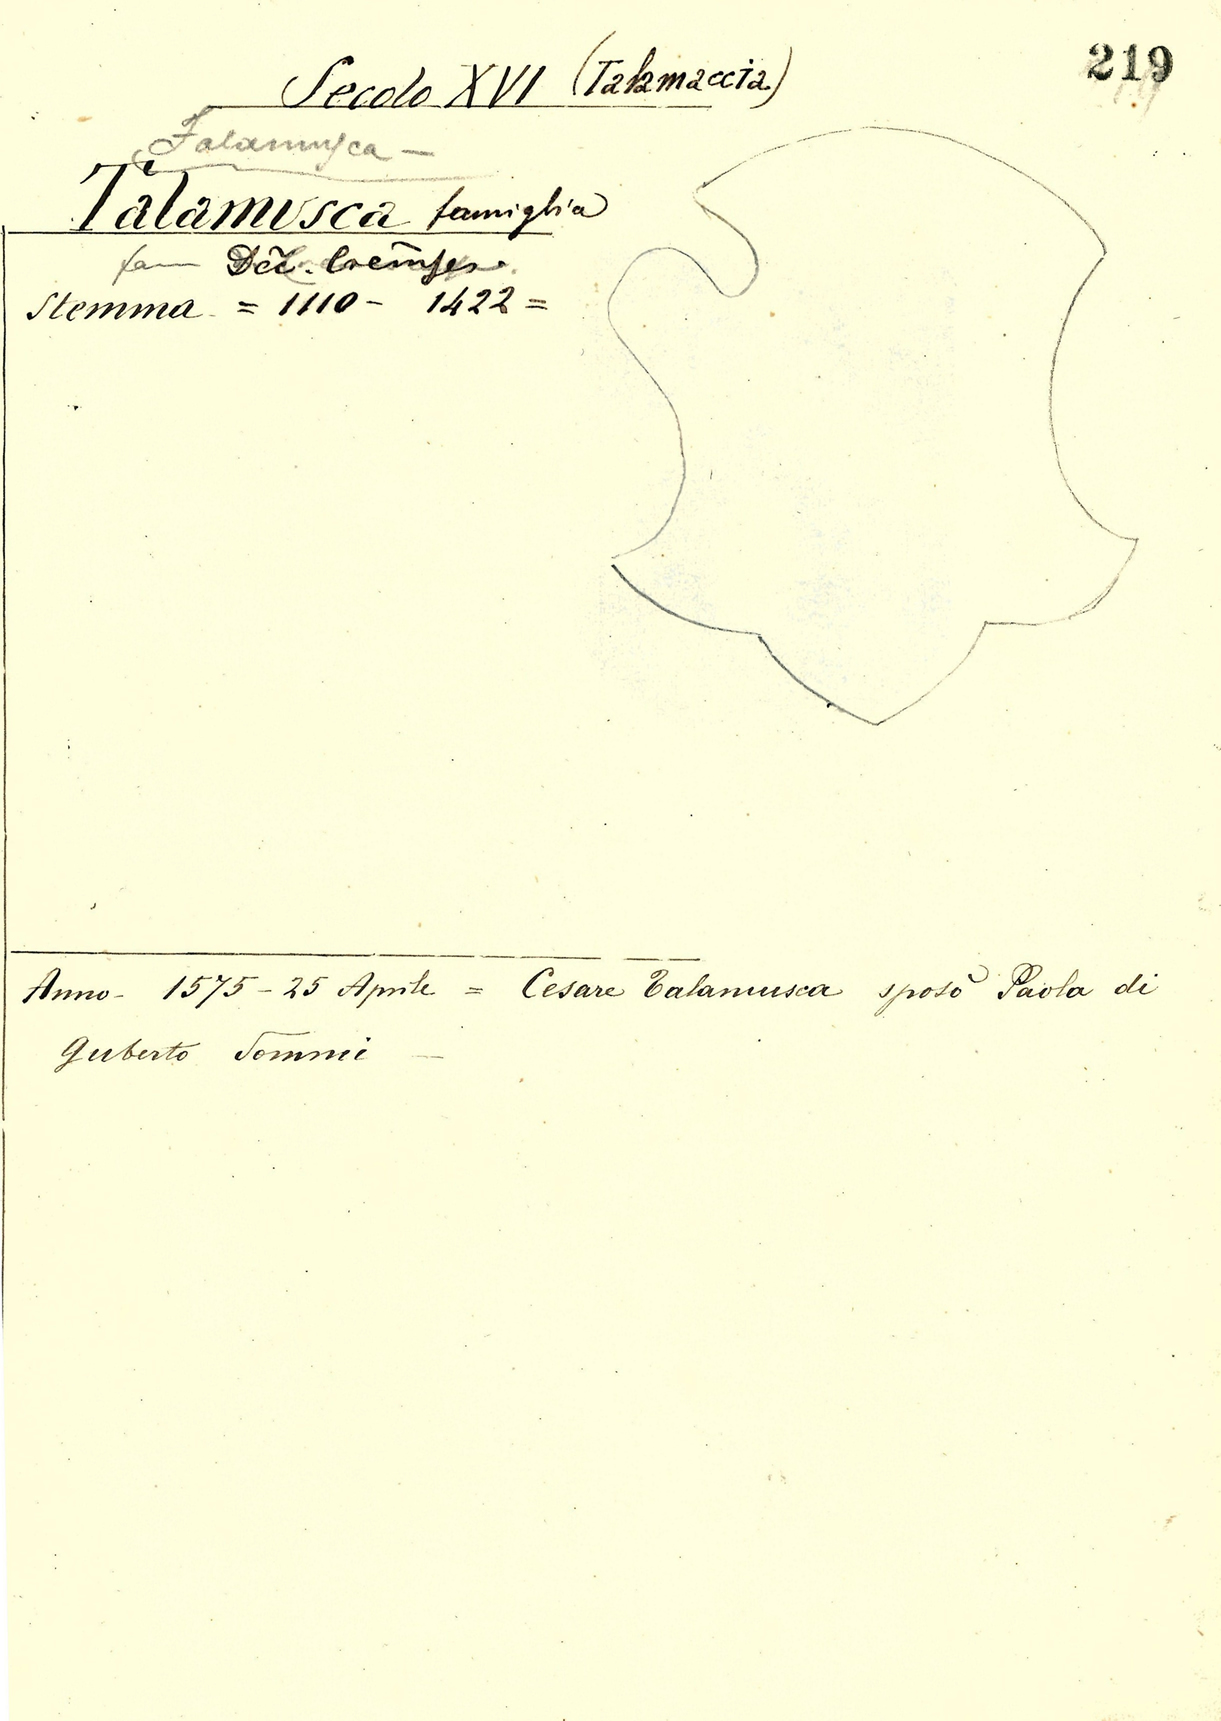 219
Secolo XVI (Talamaccia)
Talamusca —
Talamusca famiglia
fam
Stemma = 1110 - 1422 =
Anno - 1575 - 25 Aprile = Cesare Talamusca sposò Paola di
Guberto Sommi —